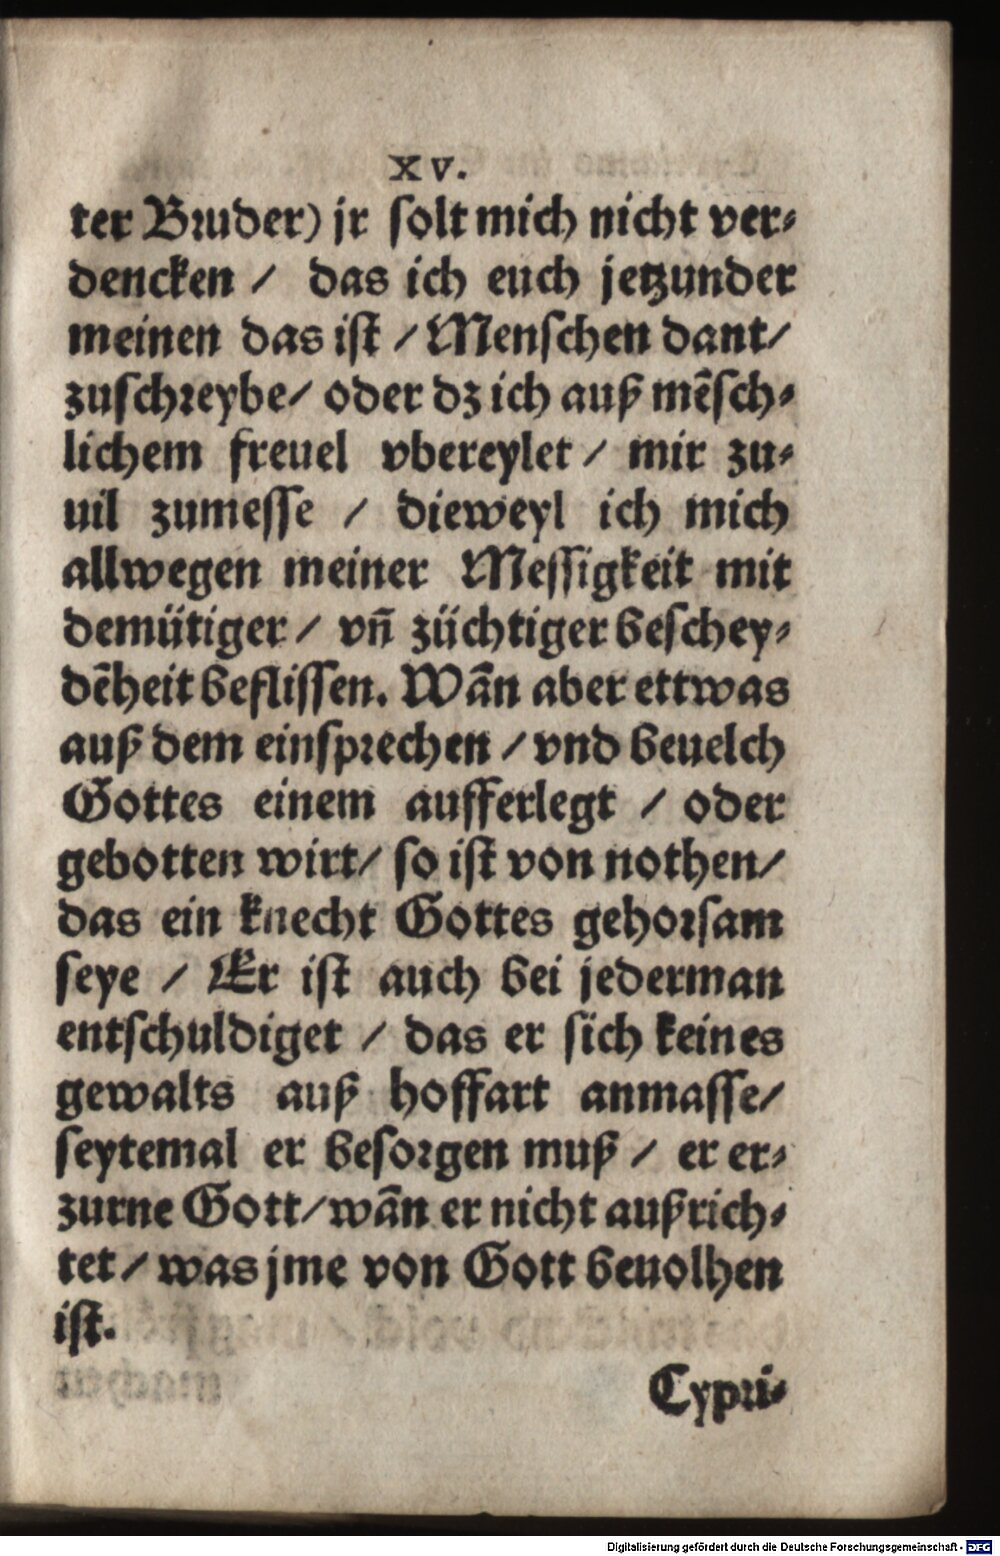 XV.
ter Bruder) jr solt mich nicht ver⸗
dencken / das ich euch jetzunder
meinen das ist / Menschen dant/
zuschreybe/ oder dz ich auß mẽsch⸗
lichem freuel vbereylet / mir zu⸗
uil zumesse / dieweyl ich mich
allwegen meiner Messigkeit mit
demütiger / vñ züchtiger beschey⸗
dẽheit beflissen. Wãn aber ettwas
auß dem einsprechen / vnd beuelch
Gottes einem aufferlegt / oder
gebotten wirt/ so ist von nothen/
das ein knecht Gottes gehorsam
seye / Er ist auch bei jederman
entschuldiget / das er sich keines
gewalts auß hoffart anmasse/
seytemal er besorgen muß / er er⸗
zurne Gott/wãn er nicht außrich⸗
tet / was jme von Gott beuolhen
ist.
Cypri⸗
Digitalisierung gefördert durch die Deutsche Forschungsgemeinschaft - DFG